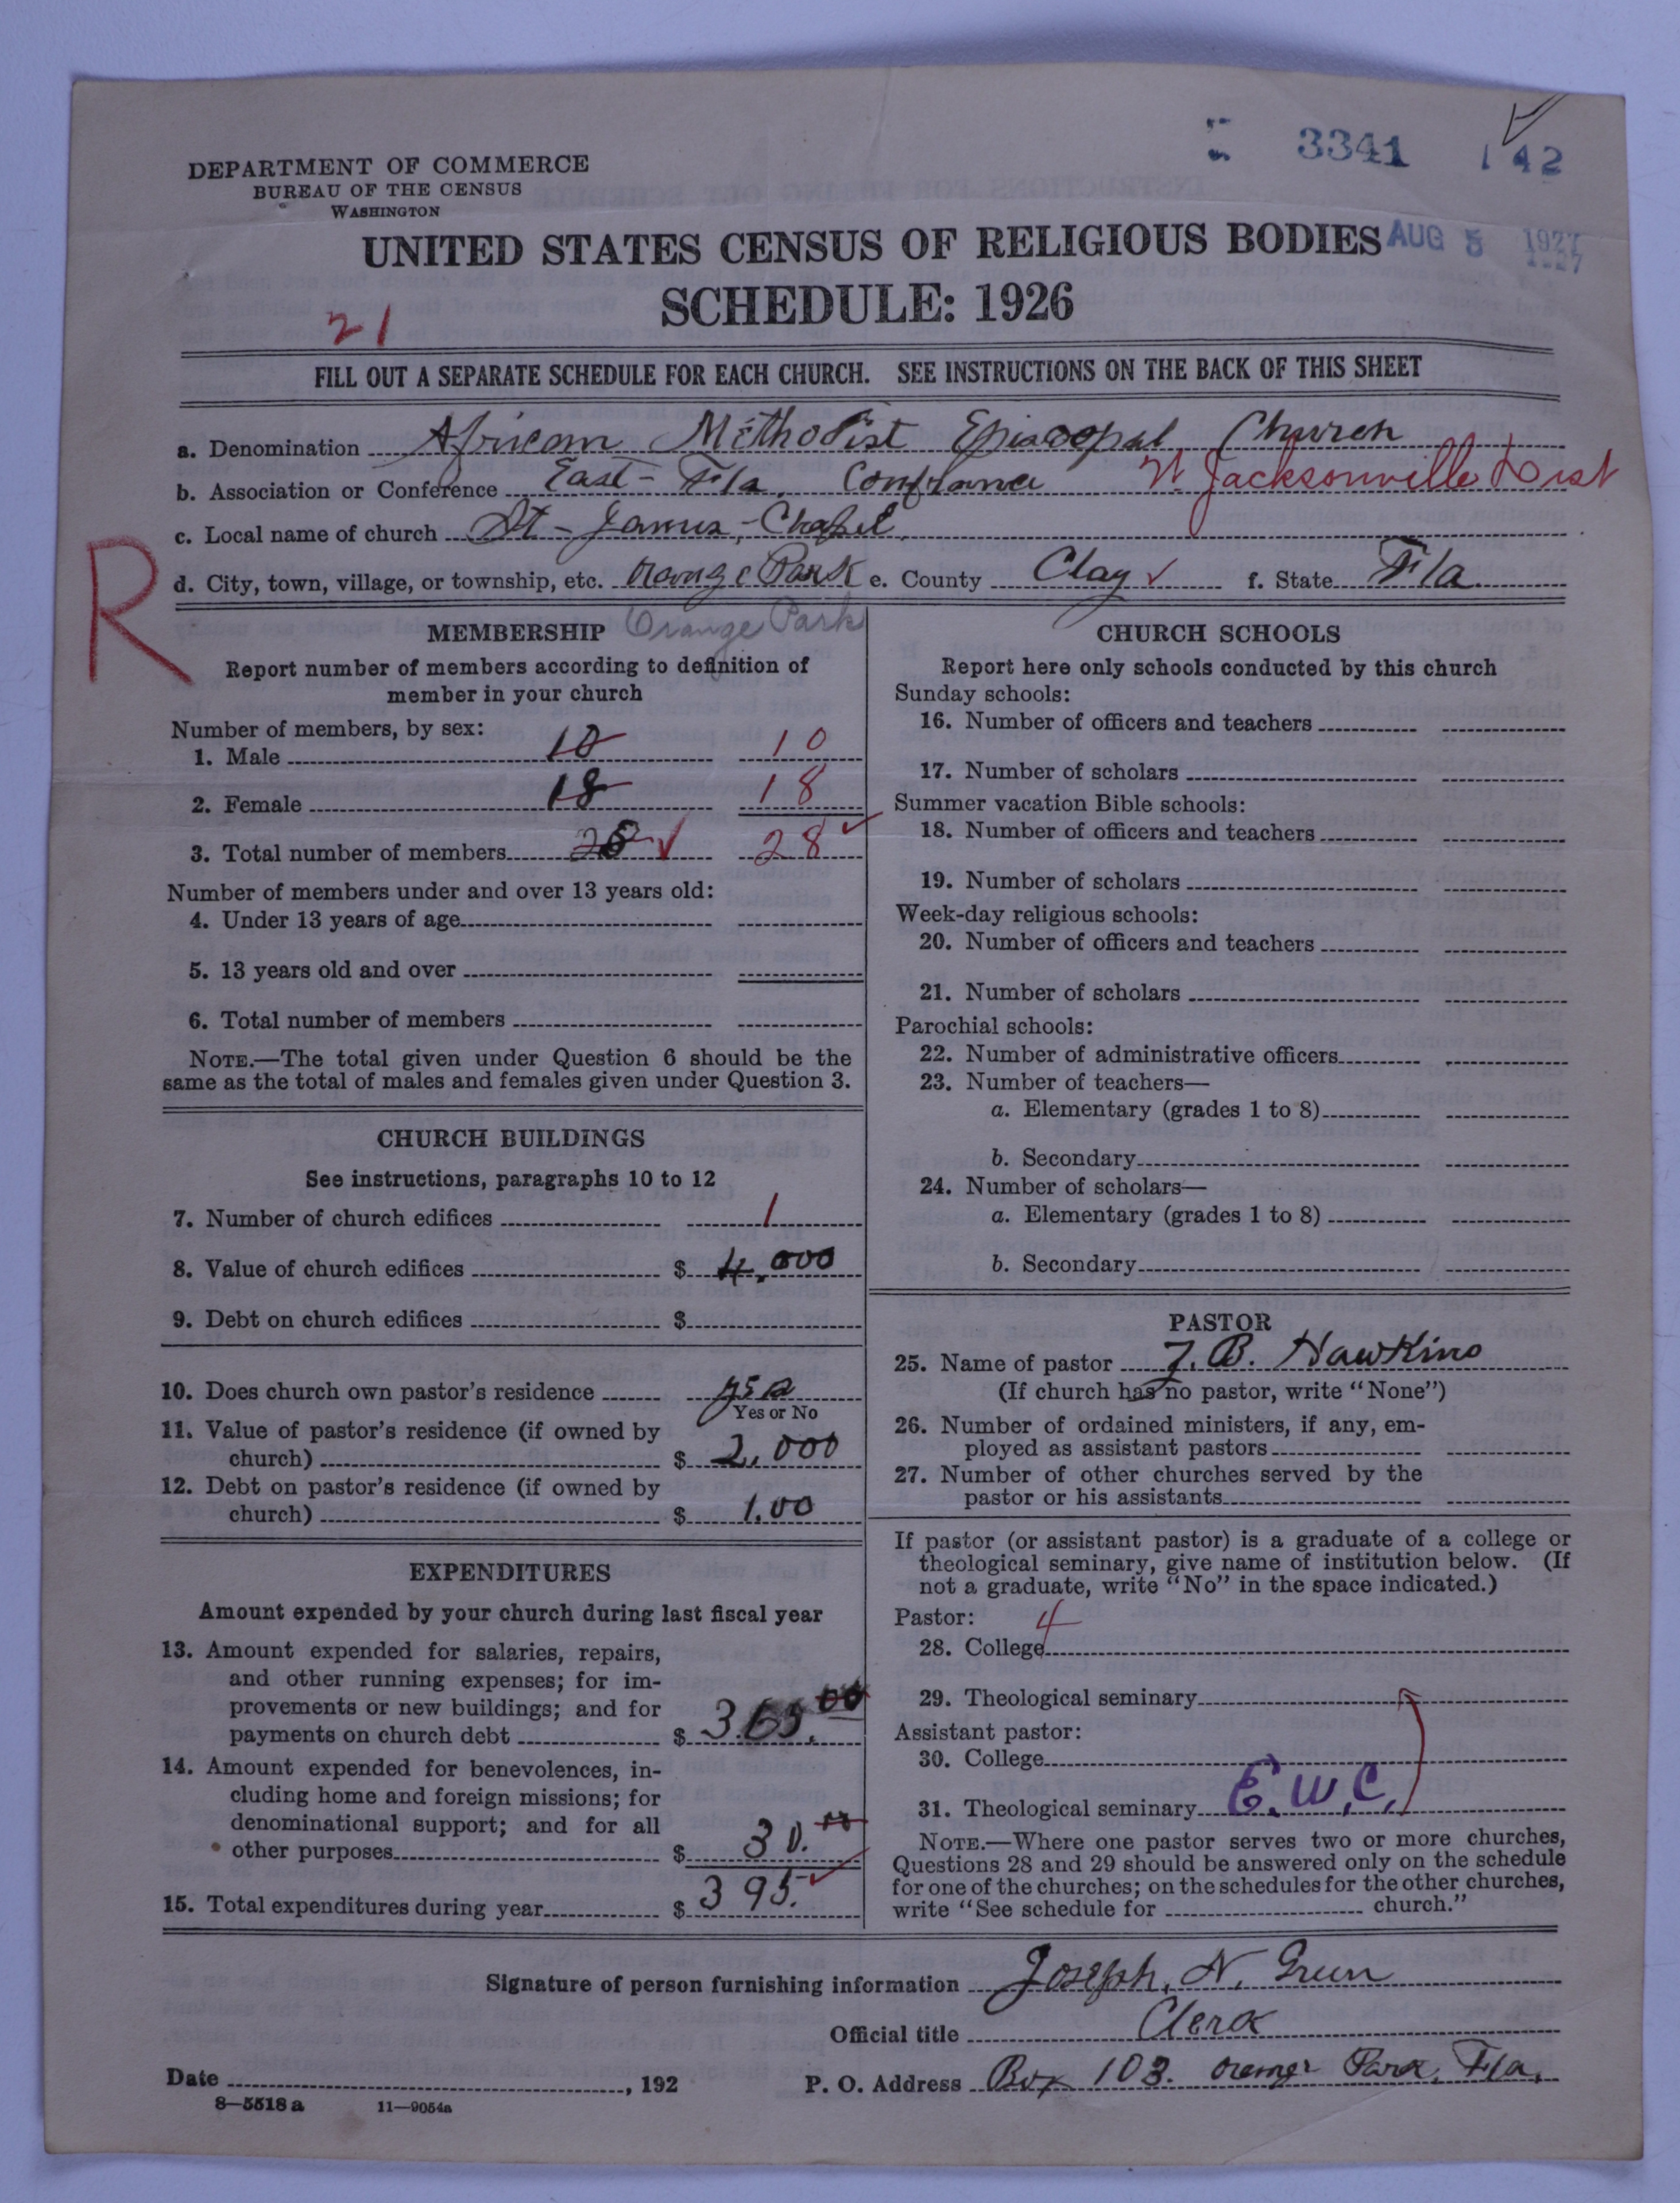 3341 142
DEPARTMENT OF COMMERCE
BUREAU OF THE CENSUS
WASHINGTON
UNITED STATES CENSUS OF RELIGIOUS BODIES AUG 5 1927
SCHEDULE: 1926
21
FILL OUT A SEPARATE SCHEDULE FOR EACH CHURCH. SEE INSTRUCTIONS ON THE BACK OF THIS SHEET
a. Denomination African Methodist Episcopal Church
b. Association or Conference East - Fla. Jacksonville Dist
c. Local name of church St - James, - Chapel
d. City, town, village, or township, etc. Orange Park e. County Clay f. State Fla.
R
MEMBERSHIP Orange Park
Report number of members according to definition of
member in your church
Number of members, by sex:
1. Male 10 10
2. Female 18 18
3. Total number of members 28 28
Number of members under and over 13 years old:
4. Under 13 years of age
5. 13 years old and over
6. Total number of members
NOTE.—The total given under Question 6 should be the
same as the total of males and females given under Question 3.
CHURCH BUILDINGS
See instructions, paragraphs 10 to 12
7. Number of church edifices 1
8. Value of church edifices $ 4,000
9. Debt on church edifices $
10. Does church own pastor's residence
Yes or No
11. Value of pastor's residence (if owned by
church) $ 2,000
12. Debt on pastor's residence (if owned by
church) $ 1.00
EXPENDITURES
Amount expended by your church during last fiscal year
13. Amount expended for salaries, repairs,
and other running expenses; for im-
provements or new buildings; and for
payments on church debt $ 365.00
14. Amount expended for benevolences, in-
cluding home and foreign missions; for
denominational support; and for all
other purposes $ 30.
15. Total expenditures during year $ 395.
CHURCH SCHOOLS
Report here only schools conducted by this church
Sunday schools:
16. Number of officers and teachers
17. Number of scholars
Summer vacation Bible schools:
18. Number of officers and teachers
19. Number of scholars
Week-day religious schools:
20. Number of officers and teachers
21. Number of scholars
Parochial schools:
22. Number of administrative officers
23. Number of teachers—
a. Elementary (grades 1 to 8)
b. Secondary
24. Number of scholars—
a. Elementary (grades 1 to 8)
b. Secondary
PASTOR
25. Name of pastor J. B. Hawkins
(If church has no pastor, write "None")
26. Number of ordained ministers, if any, em-
ployed as assistant pastors
27. Number of other churches served by the
pastor or his assistants
If pastor (or assistant pastor) is a graduate of a college or
theological seminary, give name of institution below. (If
not a graduate, write "No" in the space indicated.)
Pastor: 4
28. College
29. Theological seminary
Assistant pastor:
30. College
31. Theological seminary E.W.C.
NOTE.—Where one pastor serves two or more churches,
Questions 28 and 29 should be answered only on the schedule
for one of the churches; on the schedules for the other churches,
write "See schedule for church."
Signature of person furnishing information Joseph, N, Green
Official title Clerk
Date , 192 P. O. Address Box 103. Park, Fla.
8—5518 a 11—9054a